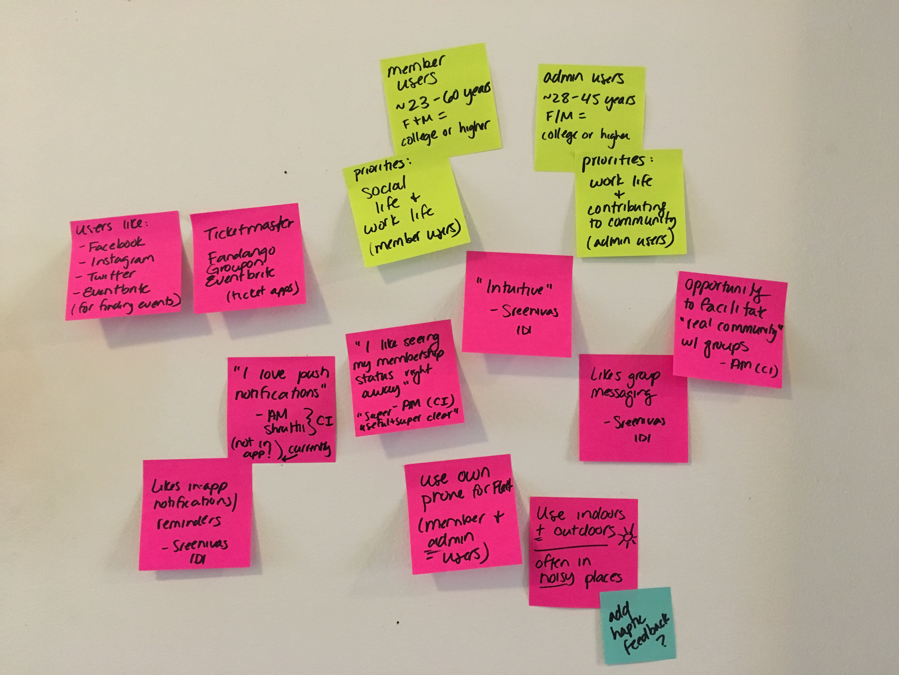 member
users
~23-60 years
F+M =
college or higher
admin users
~28-45 years
F/M =
college or higher
priorities:
social
life +
work life
(member users)
priorities:
work life
+
contributing
to community
(admin users)
users like:
- Facebook
- Instagram
- Twitter
- Eventbrite
(for finding events)
Ticketmaster
Fandango
Groupon
Eventbrite
(ticket apps)
"Intuitive"
- Sreenivas
IDI
opportunity
to facilitat
"real community"
w/ groups
- AM (CI)
"I love push
notifications"
- AM
Shruthi } CI
(not in
app?) currently
"I like seeing
my membership
status right
away"
- AM (CI)
"super
useful + super clear"
Likes group
messaging
- Sreenivas
IDI
Likes in-app
notifications/
reminders
- Sreenivas
IDI
use own
phone for
(member +
admin
users)
Use indoors
+ outdoors
often in
noisy places
add
haptic
feedback
?